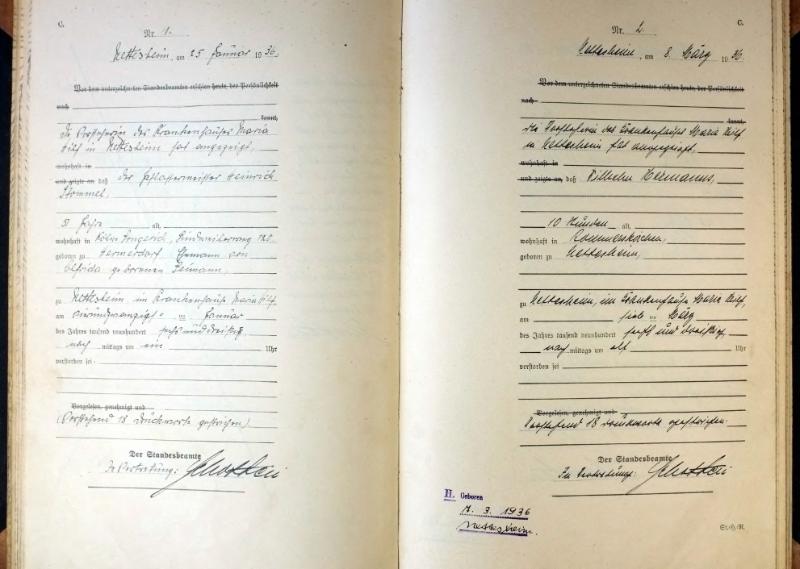 C.
Nr. 1.
Nettesheim, am 25 Januar 1936.
Vor dem unterzeichneten Standesbeamten erschien heute, der Persönlichkeit
nach
kannt,
Die Vorsteherin des Krankenhauses Maria
Hilf in Nettesheim hat angezeigt,
wohnhaft in
und zeigte an, daß der Heinrich
Stommel,
51 Jahre alt,
wohnhaft in Köln
geboren zu Ehemann von
geborenen
zu Nettesheim im Krankenhause Maria Hilf
am vierundzwanzigsten Januar
des Jahres tausend neunhundert sechs und dreißig
nach mittags um ein Uhr
verstorben sei.
Vorgelesen, genehmigt und
Vorstehend 18 Druckworte gestrichen.
Der Standesbeamte
In Vertretung:
Nr. 2
C.
Nettesheim, am 8. März 1936.
Vor dem unterzeichneten Standesbeamten erschien heute, der Persönlichkeit
nach
kannt,
Die Vorsteherin des Krankenhauses Maria Hilf
in Nettesheim hat angezeigt,
wohnhaft in
und zeigte an, daß Wilhelm Hermanns,
10 Stunden alt,
wohnhaft in Rommerskirchen,
geboren zu Nettesheim,
zu Nettesheim, im Krankenhause Maria Hilf
am März
des Jahres tausend neunhundert sechs und dreißig
nach mittags um elf Uhr
verstorben sei.
Vorgelesen, genehmigt und
Vorstehend 18 Druckworte gestrichen.
Der Standesbeamte
In Vertretung:
H. Geboren
7. 3. 1936
Nettesheim.